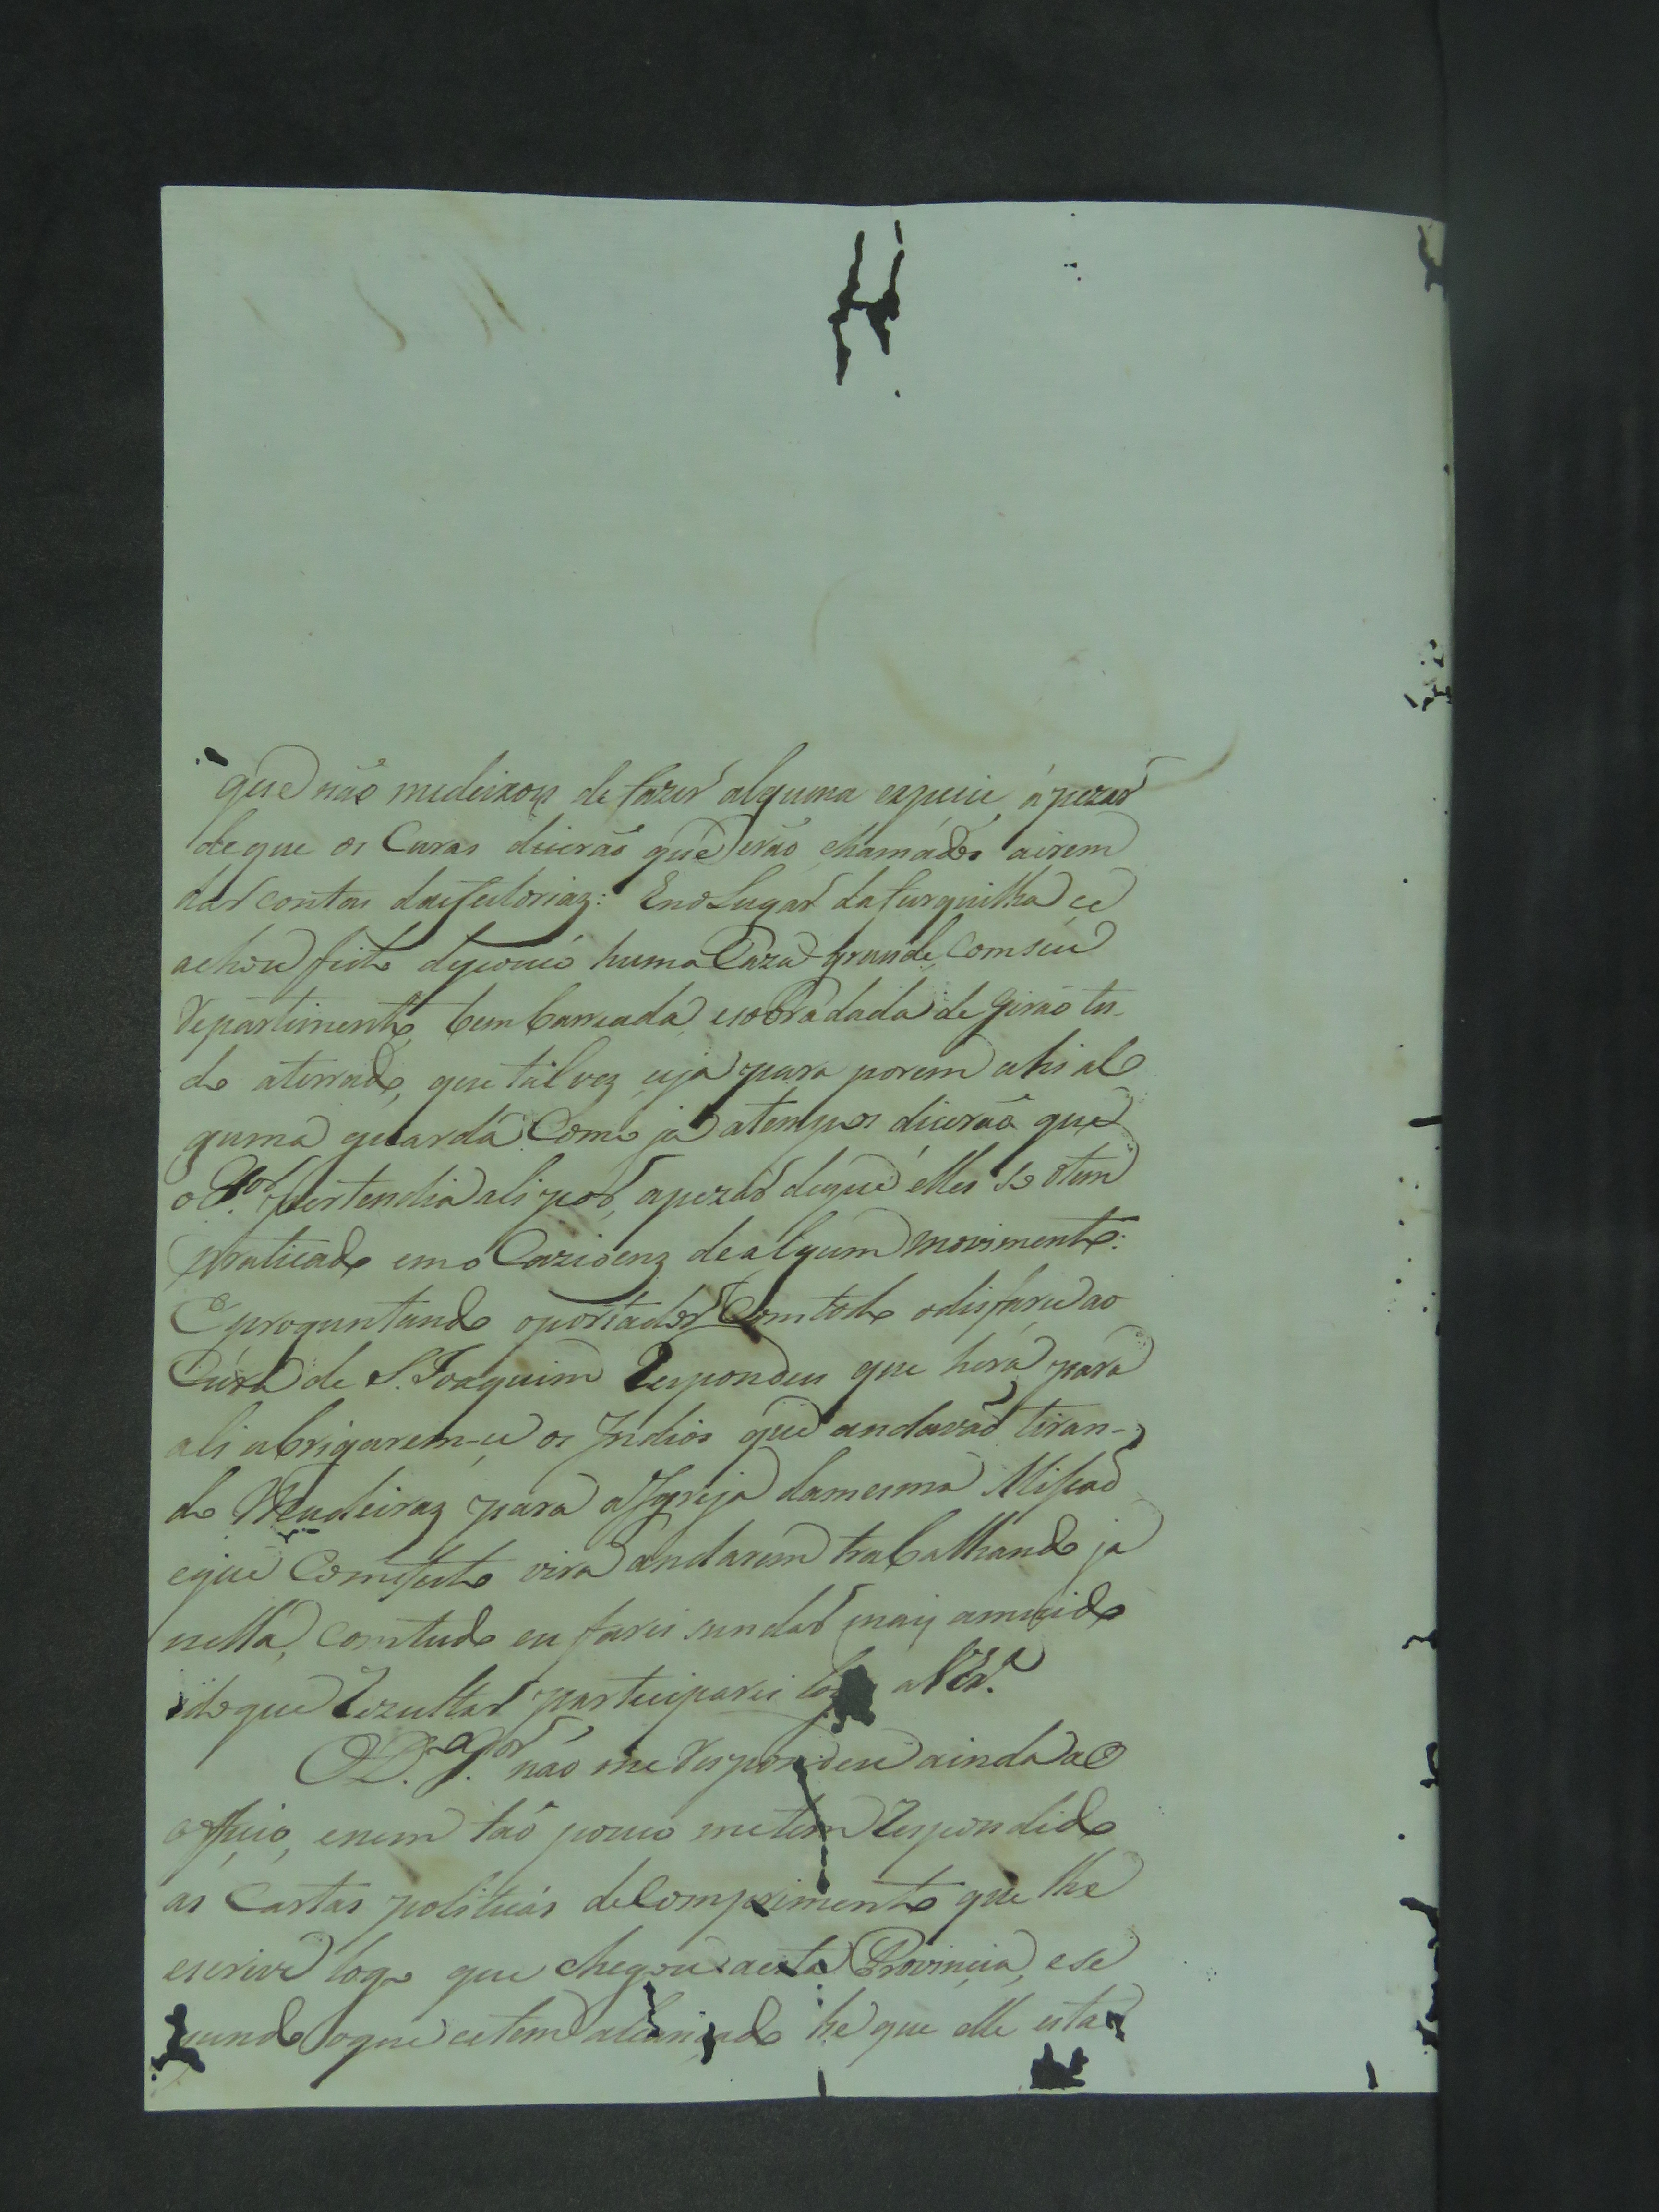 que não medeixou de fazer alguma especie, ápezar
de que os Curas dicerão que erão chamados airem
dar contas dasfeitoriaz: Eno Lugar da furquilha ce
achou feito depouco huma Caza grande, comseu
Repartimento, bem barreada, esobradada de Girao tu-
do aterrado, que talvez ceja para porem ahi al
guma guarda Como ja atempos dicerão que
o G.or pertendia ali por, apezar deque elles so otem
praticado em o Cazioens de algum movimento:
E proguntando oportador Com todo odisfarce ao
Cura de S. Joaquim Respondeu que herá para
ali abrigarem-ce os Indios que andavão tiran-
do Madeiraz para a Igreja damesma Missão
eque Comefeito vira andarem trabalhando ja
nella, comtudo eu farei sundar mais amiudo
edoque Rezultar participarei logo a V Ex.a
O D. G.or não me Respondeu ainda ao
officio, enem tão pouco metem Respondido
as Cartas politicas de Comprimento que lhe
escrivi logo que chegou aesta Provincia, ese
gundo oque cetem alcançado he que elle esta